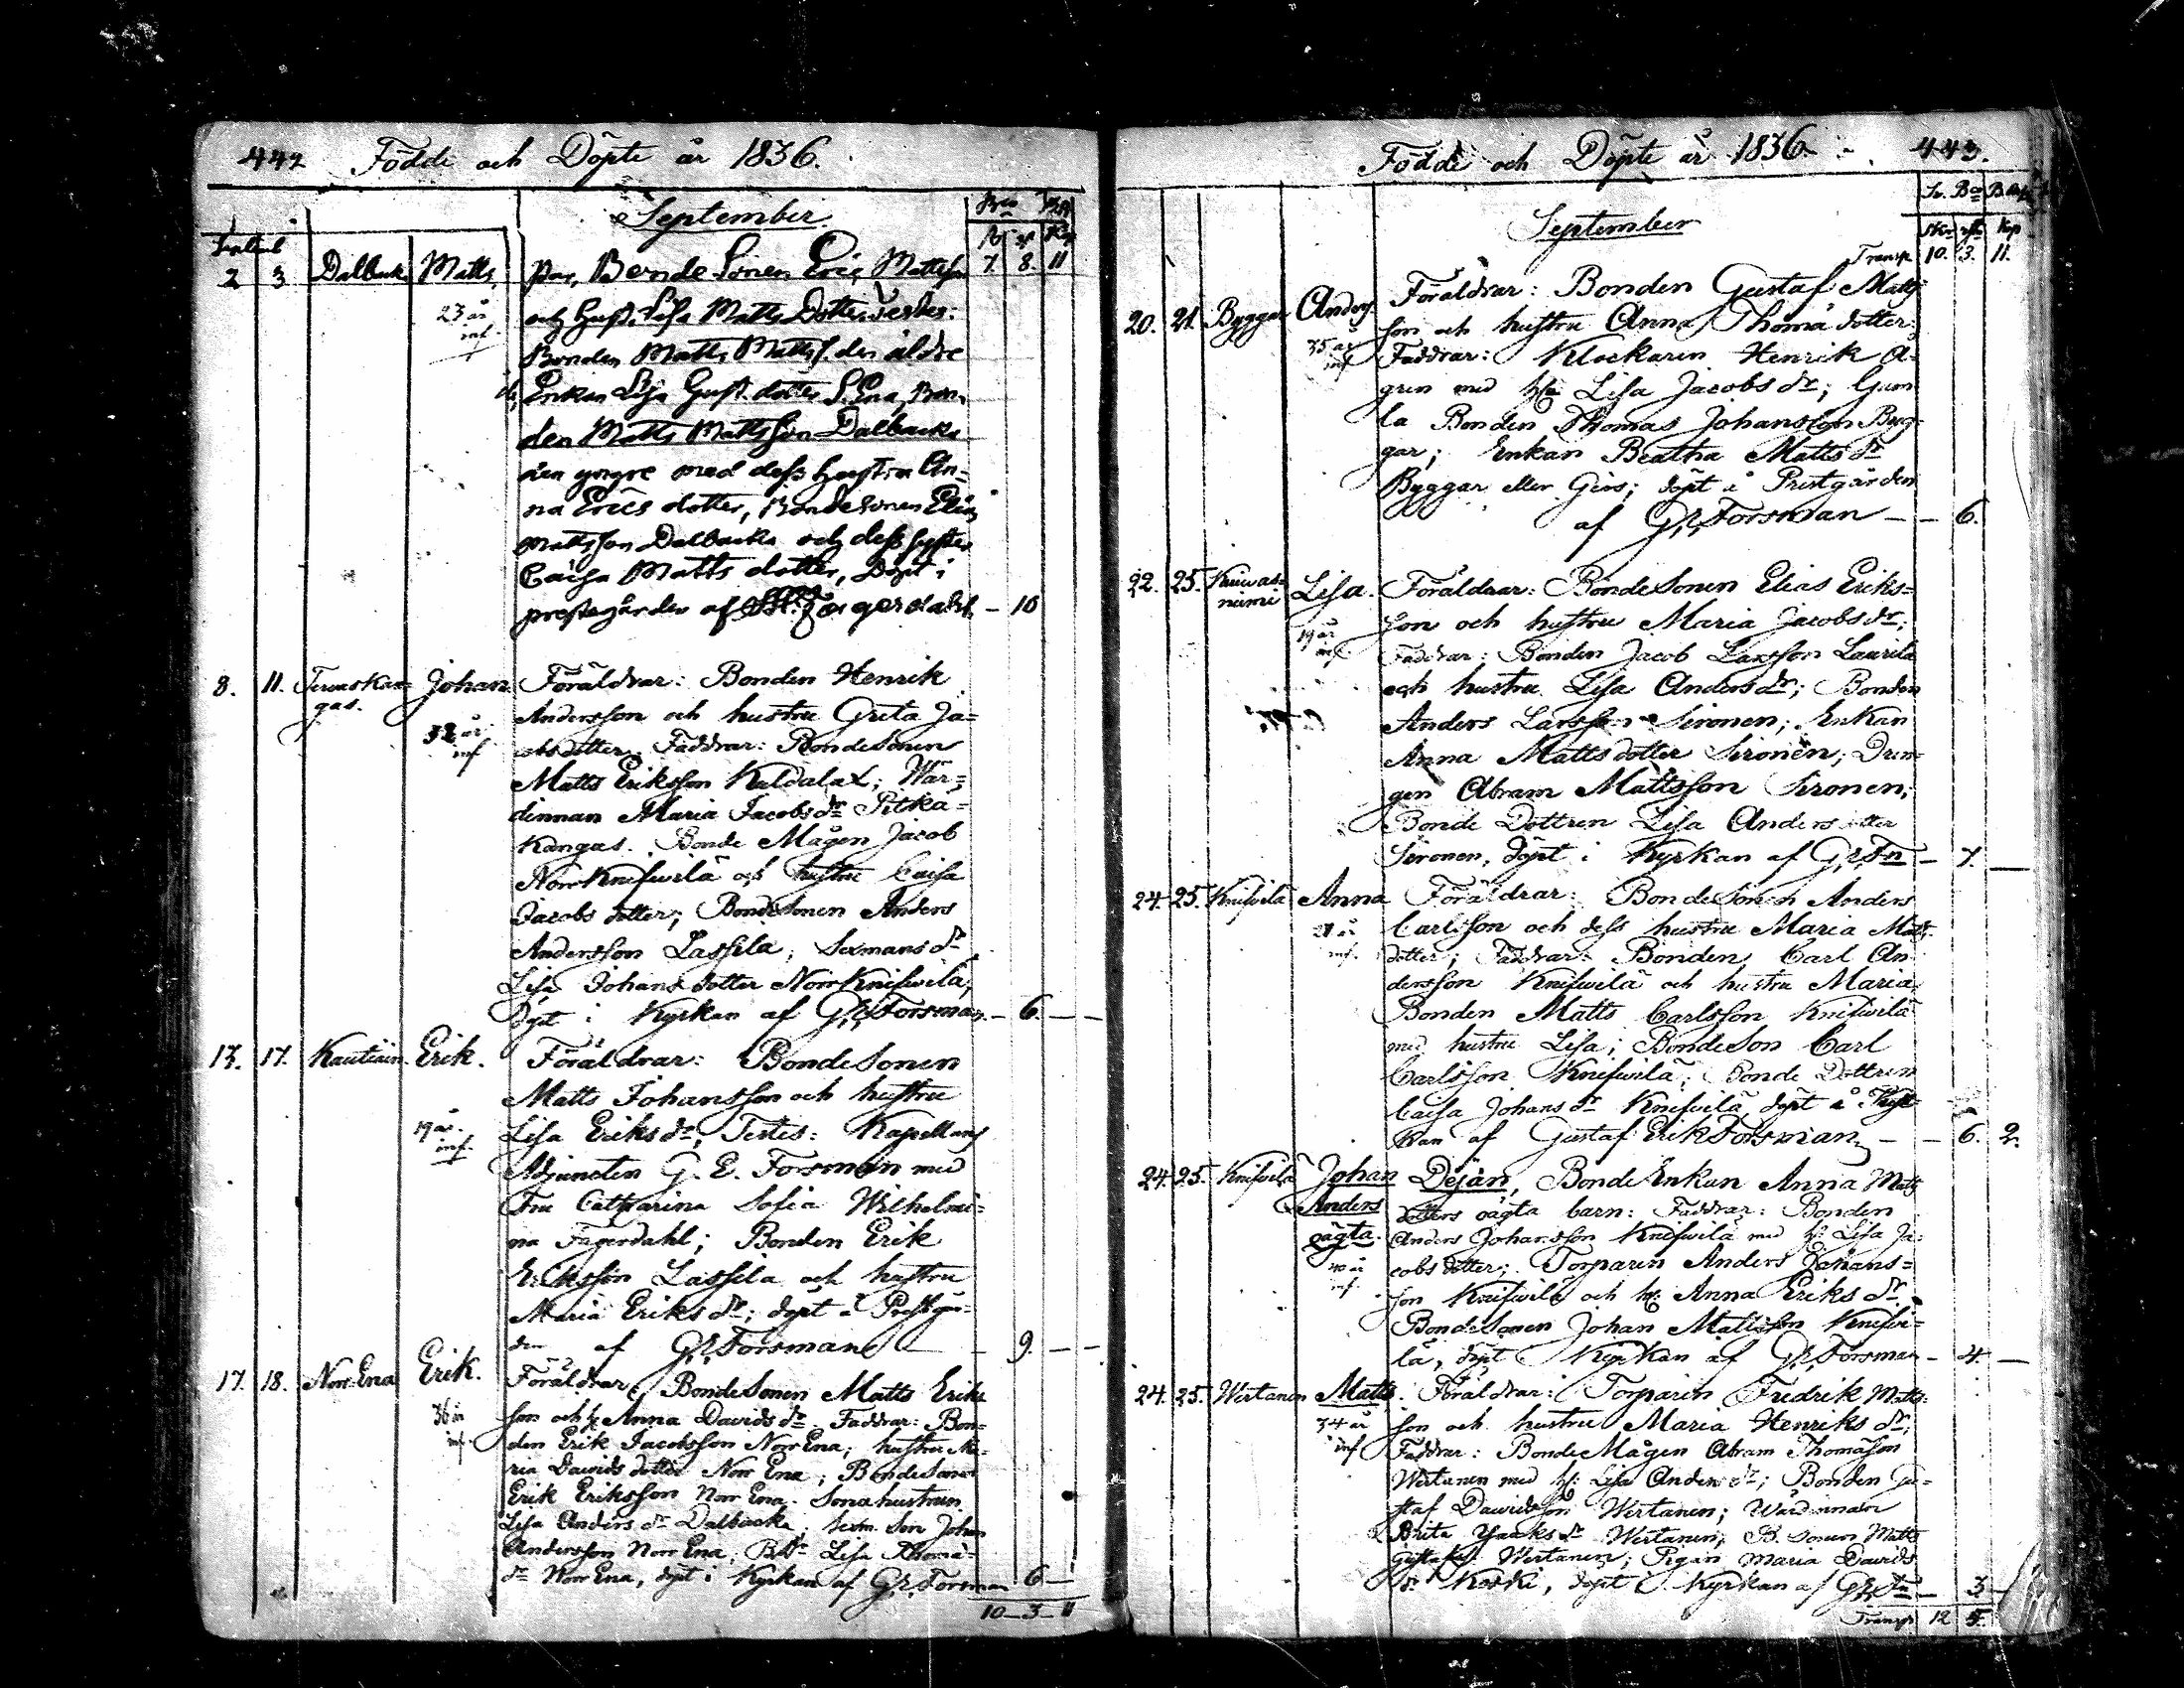 442 Födde och Döpte år 1836.
September
2 3 Dalbacka Matts, par, Bonde Sonen Eric Mattsson 7. 8. 11
23 år inf. och Hust. Lisa Matts Dotter Testes:
Bonden Matts Matts. den äldre
Enkan Lisa Gust. dotter S. Ena, Bon-
den Matts Mattsson Dalbacka
den yngre med dess hustru An-
na Erics dotter, Bondesonen Elias
Mattsson Dalbacka och dess syster
Caisa Matts dotter, Döpt i
prestegården af Fagerdahl. — 10
8. 11. Terwaskan-
gas. Johan. Föräldrar: Bonden Henrik
32 år inf Andersson och hustru Greta Ja-
cobsdotter. Faddrar: Bondesonen
Matts Eriksson Kaldalax; Wär-
dinnan Maria Jacobsdr Pitka-
kangas. Bonde Mågen Jacob
Norr Knifwilä och hustru Caisa
Jacobs dotter; Bondesonen Anders
Andersson Lassila; Sexmansdr
Lisa Johans dotter Norr Knifwilä,
döpt i Kyrkan af G. E. Forsman. — 6. — —
13. 17. Kautiain. Erik. Föräldrar: Bondesonen
Matts Johansson och hustru
19 år. inf. Lisa Eriksdr, Testes: Kapellans
Adjuncten G. E. Forsman med
Fru Catharina Sofia Wilhelmi-
na Fagerdahl; Bonden Erik
Eriksson Lassila och hustru
Maria Eriksdr; döpt i Prestgår-
den af G. E. Forsman — 9. — —
17. 18. Norr Ena Erik. Föräldrar: Bondesonen Matts Eriks
36 år inf. son och h. Anna Davidsdr. Faddrar: Bon-
den Erik Jacobsson Norr Ena; hustru Ma-
ria Davids dotter Norr Ena; Bondesonen
Erik Eriksson Norr Ena. Sonahustrun
Lisa Andersdr Dalbacka; Sexm. Son Johan
Andersson Norr Ena; B.dr Lisa Thomä-
dr Norr Ena, döpt i Kyrkan af G. E. Forsman 6 —
10 — 3 — 11
Födde och Döpte år 1836. 443.
September
Transp. 10. 3. 11.
20. 21. Byggar Anders Föräldrar: Bonden Gustaf Matts-
son och hustru Anna Thomä dotter:
35 år inf Faddrar: Klockaren Henrik Å-
gren med h. Lisa Jacobsdr; Gam-
la Bonden Thomas Johansson Byg-
gar; Enkan Beatha Mattsdr
Byggar eller Giös; döpt i Prestgården
af G. E. Forsman — — 6.
22. 25. Kiiwas-
niemi Lisa. Föräldrar: Bondesonen Elias Eriks-
19 år inf. son och hustru Maria Jacobsdr;
Faddrar: Bonden Jacob Larsson Laurila
och hustru Lisa Andersdr; Bonden
Anders Larsson Sironen; Enkan
Anna Matts dotter Sironen; Drän-
gen Abram Mattsson Sironen;
Bonde Dottren Lisa Anders dotter
Sironen, döpt i Kyrkan af G. E. Fn — 7. —
24. 25. Knifwilä Anna Föräldrar: Bondesonen Anders
21 år inf. Carlsson och dess hustru Maria Matts
dotter; Faddrar: Bonden Carl An-
dersson Knifwilä och hustru Maria,
Bonden Matts Carlsson Knifwilä
med hustru Lisa; Bondeson Carl
Carlsson Knifwilä; Bonde Dottren
Caisa Johansdr Knifwilä, döpt i Kyr-
kan af Gustaf Erik Forsman — — 6. 2.
24. 25. Knifwilä Johan Dejan, Bonde Enkan Anna Matts
Anders dotters oägta barn: Faddrar: Bonden
oägta. Anders Johansson Knifwilä med h. Lisa Ja-
40 år inf. cobs dotter; Torparen Anders Johans-
son Knifwilä och h. Anna Eriksdr.
Bondesonen Johan Mattsson Knifwi-
lä, döpt i Kyrkan af G. E. Forsman — 4. —
24. 25. Wirtanen Matts. Föräldrar: Torparen Fredrik Matts-
34 år inf son och hustru Maria Henriksdr;
Faddrar: Bonde Mågen Abram Thomasson
Wirtanen med h. Lisa Andersdr; Bonden Gu-
staf Dawidsson Wirtanen; Wärdinnan
Brita Isaksdr Wirtanen; B. sonen Matts
Gustafss. Wirtanen; Pigan Maria Davids
dr Koski, döpt i Kyrkan af G. E. Fn — 3 —
Transp 12 5.